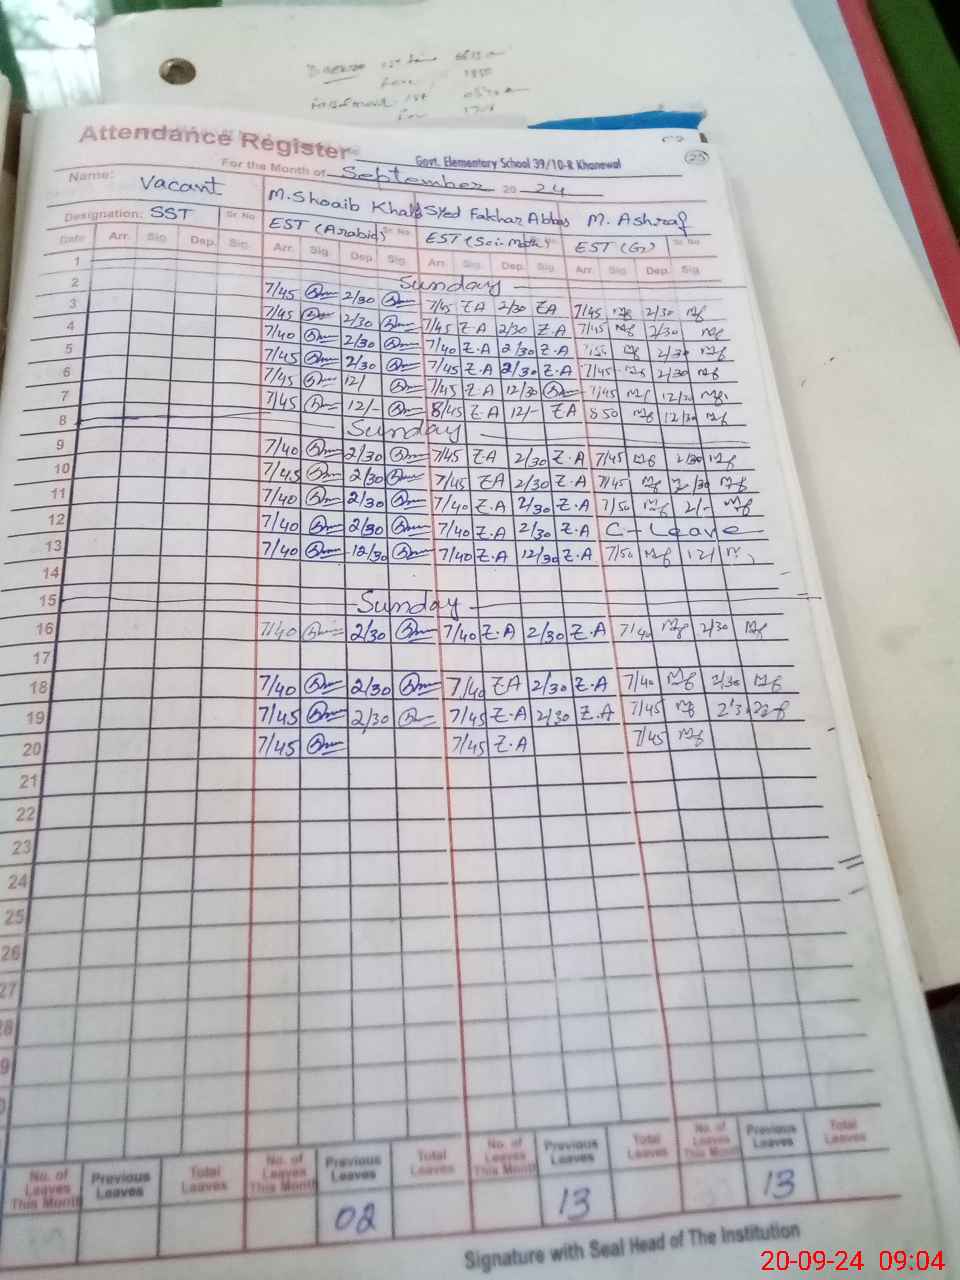 Attendance Register
Govt. Elementary School 39/10-R Khanewal
25
For the Month of September 20 24
Name: Vacant M. Shoaib Khalid Syed Fakhar Abbas M. Ashraf
Designation: SST Sr. No EST (Arabic) Sr. No EST (Sci-Math) EST (G) Sr. No
Date Arr. Sig. Dep. Sig. Arr. Sig. Dep. Sig. Arr. Sig. Dep. Sig. Arr. Sig. Dep. Sig.
1 Sunday
2 7/45 2/30 7/45 Z.A 2/30 Z.A 7/45 2/30
3 7/45 2/30 7/45 Z.A 2/30 Z.A 7/45 2/30
4 7/40 2/30 7/40 Z.A 2/30 Z.A 7/50 2/30
5 7/45 2/30 7/45 Z.A 2/30 Z.A 7/45 2/30
6 7/45 12/ 7/45 Z.A 12/30 7/45 12/30
7 7/45 12/- 8/45 Z.A 12/- Z.A 8 50 12/30
8 Sunday
9 7/40 2/30 7/45 Z.A 2/30 Z.A 7/45 2/30
10 7/45 2/30 7/45 Z.A 2/30 Z.A 7/45 2/30
11 7/40 2/30 7/40 Z.A 2/30 Z.A 7/50 2/-
12 7/40 2/30 7/40 Z.A 2/30 Z.A C-Leave
13 7/40 12/30 7/40 Z.A 12/30 Z.A 7/50 12/
14
15 Sunday
16 7/40 2/30 7/40 Z.A 2/30 Z.A 7/40 2/30
17
18 7/40 2/30 7/40 Z.A 2/30 Z.A 7/40 2/30
19 7/45 2/30 7/45 Z.A 2/30 Z.A 7/45 2/30
20 7/45 7/45 Z.A 7/45
21
22
23
24
25
26
27
28
9
0
No. of Leaves This Month Previous Leaves Total Leaves No. of Leaves This Month Previous Leaves Total Leaves No. of Leaves This Month Previous Leaves Total Leaves No. of Leaves This Month Previous Leaves Total Leaves
02 13 13
Signature with Seal Head of The Institution
20-09-24 09:04